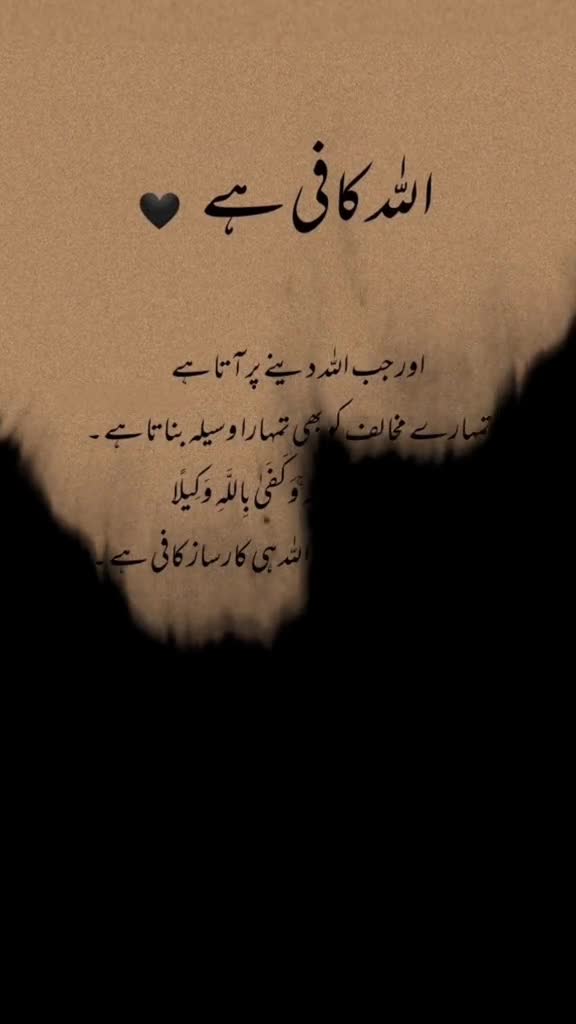 اللہ کافی ہے 🖤
اور جب اللہ دینے پر آتا ہے
تمہارے مخالف کو بھی تمہارا وسیلہ بناتا ہے ۔
وَكَفَىٰ بِاللَّهِ وَكِيلًا
اللہ ہی کارساز کافی ہے ۔